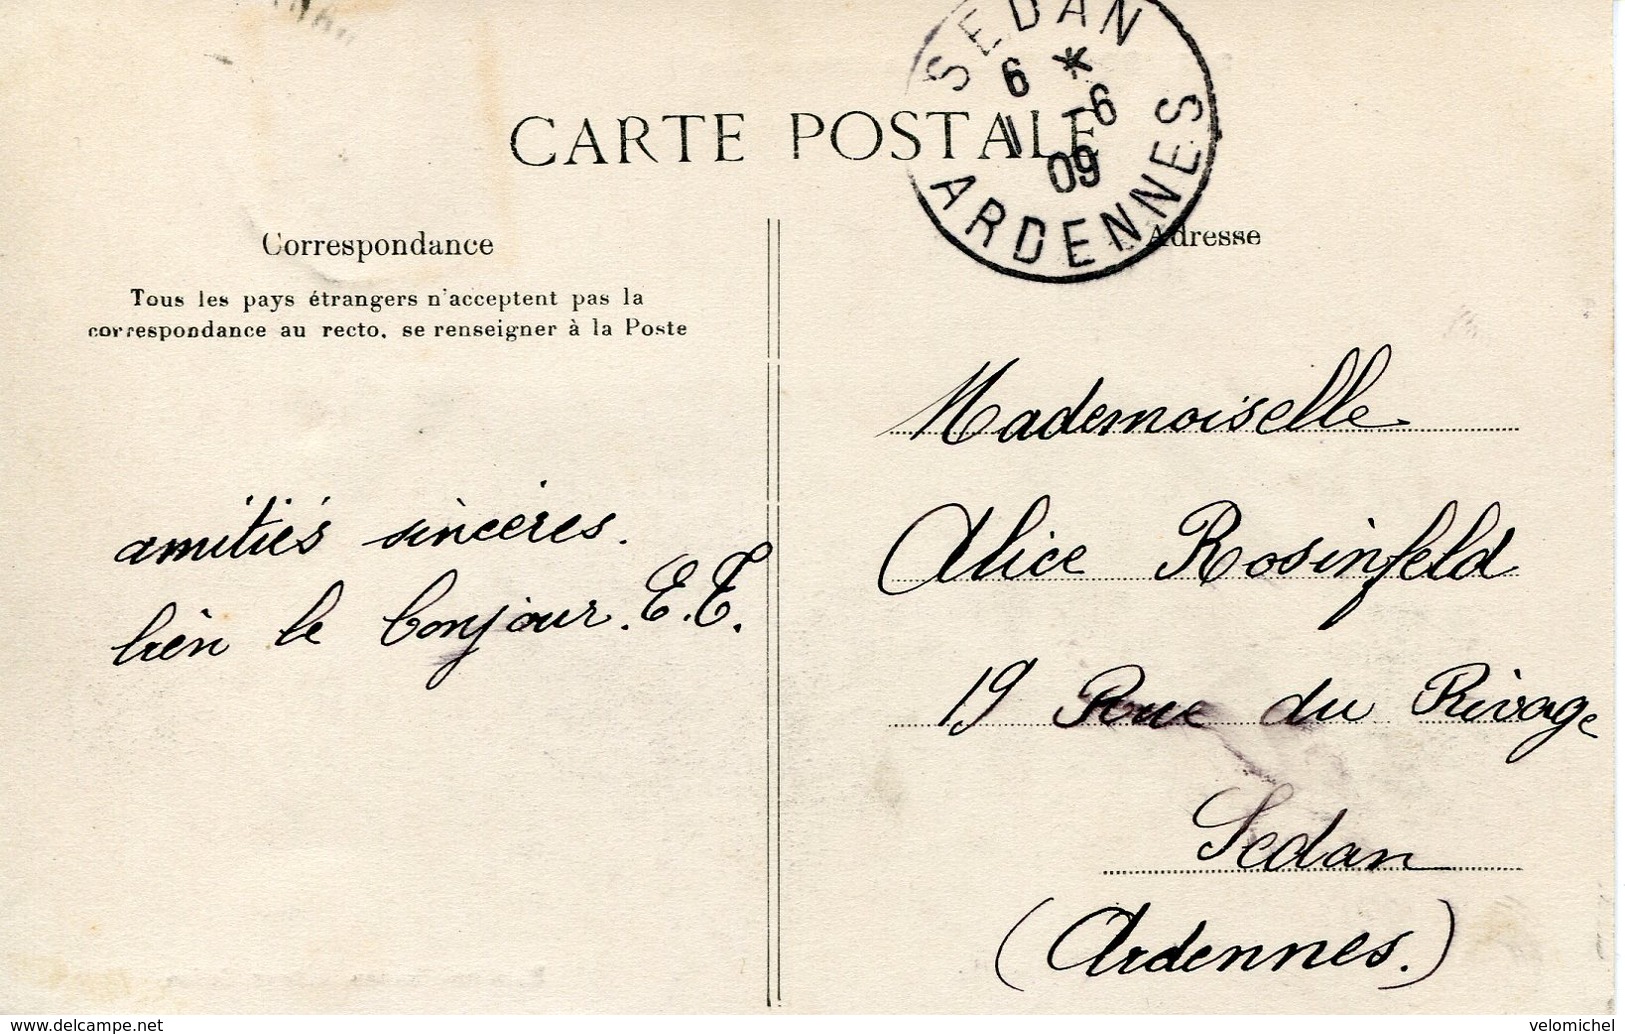 SEDAN
6 *
11 -6
09
ARDENNES
CARTE POSTALE
Correspondance
Adresse
Tous les pays étrangers n'acceptent pas la
correspondance au recto, se renseigner à la Poste
amitiés sincères.
bien le bonjour. E.T.
Mademoiselle
Alice Rosinfeld
19 Rue du Rivage
Sedan
(Ardennes.)
https://www.delcampe.net
velomichel